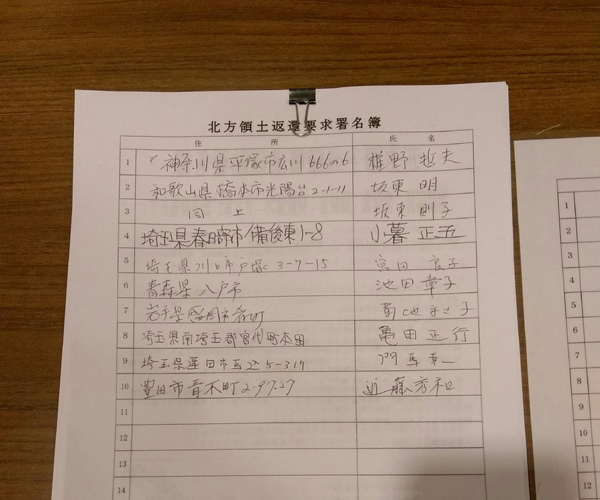 北方領土返還要求署名簿
住所 氏名
1 神奈川県平塚市広川666の6 椎野哲夫
2 和歌山県橋本市光陽台2-1-11 坂東明
3 同上 坂東則子
4 埼玉県春日部市備後東1-8 小暮正五
5 埼玉県川口市戸塚3-7-15 宮田良子
6 青森県八戸市 池田章子
7 岩手県盛岡市
8 埼玉県南埼玉郡宮代町本田 亀田正行
9 埼玉県蓮田市 5-317
10 豊田市青木町2-97-27 近藤秀和
11
12
13
14
1
2
3
4
5
6
7
8
9
10
11
12